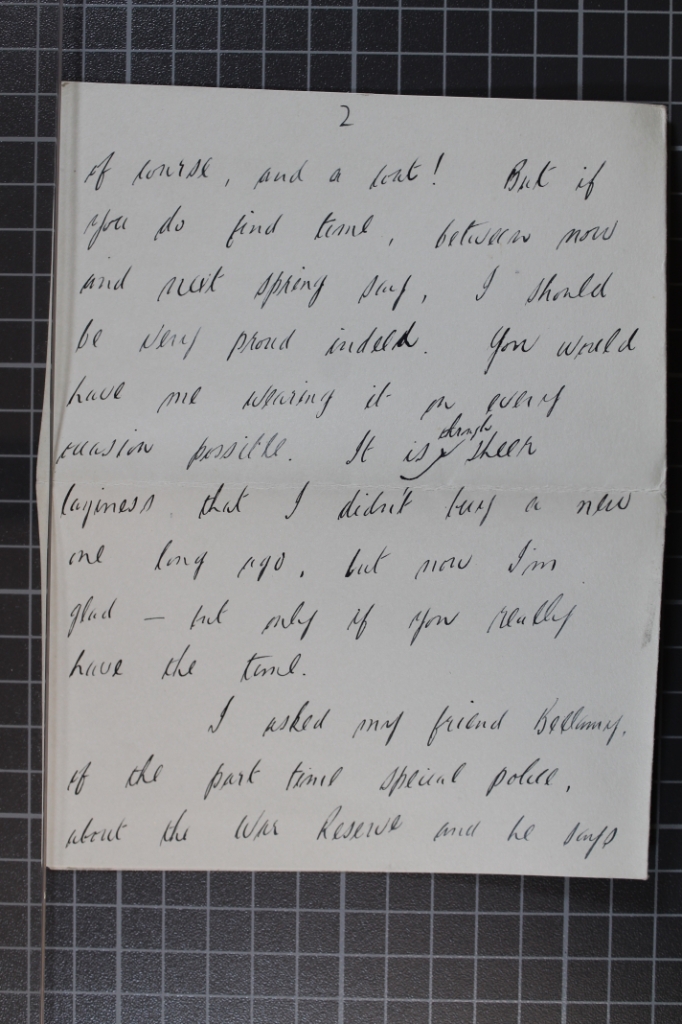 2
of course, and a coat! But if
you do find time, between now
and next spring say, I should
be very proud indeed. You would
have me wearing it on every
occasion possible. It is though sheer
laziness that I didn't buy a new
one long ago, but now I'm
glad — but only if you really
have the time.
I asked my friend Bellamy,
of the part time special police,
about the War Reserve and he says